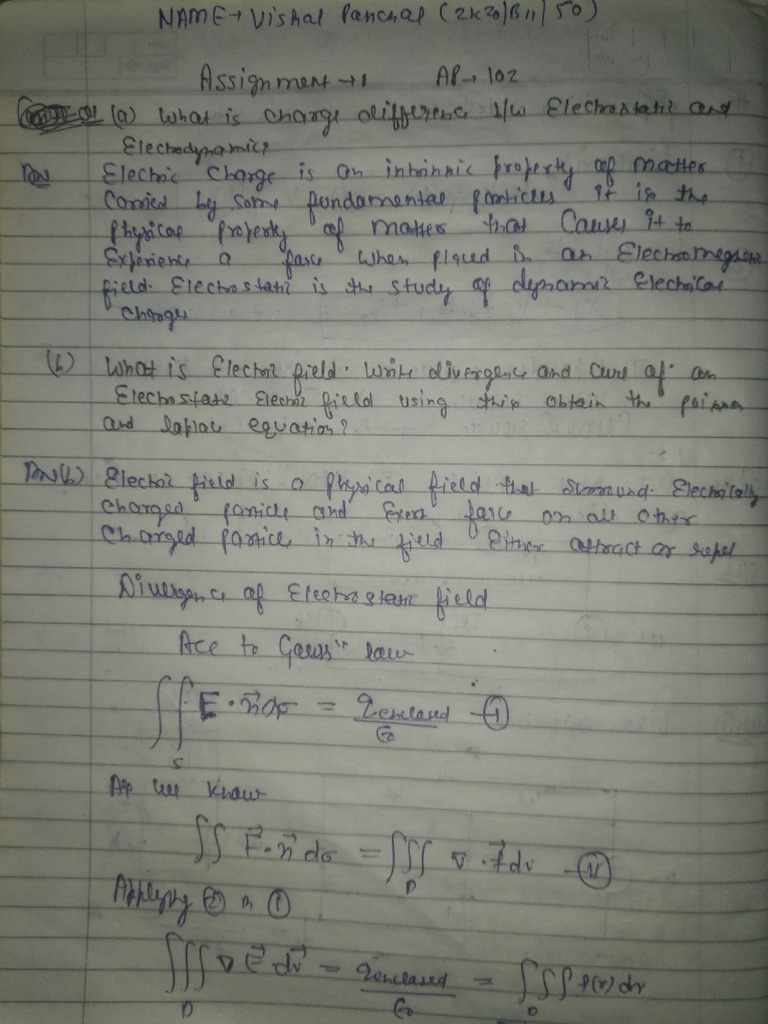 NAME → Vishal Panchal (2K20/B11/50)
Assignment → 1 AP → 102
(a) What is charge difference b/w Electrostatic and
Electrodynamics
Ans Electric Charge is an intrinsic property of matter
Carried by some fundamental particles it is the
physical property of matter that Causes it to
Experience a force when placed in an Electromagnetic
field. Electrostatic is the study of dynamic Electrical
Charges
(b) What is Electric field. Write divergence and Curl of an
Electrostatic Electric field using this obtain the poisson
and laplac equation?
Ans(b) Electric field is a physical field that surround Electrically
Charged particle and Exert force on all other
Charged particle in the field Either attract or repel
Divergence of Electrostatic field
Acc to Gauss" law
∬ E · n⃗ dσ = q enclosed / ε₀ — ①
S
As we know
∬ F⃗ · n⃗ dσ = ∭ ∇ · f⃗ dv — ⑪
D
Applying ② in ①
∭ ∇ E⃗ dv⃗ = q enclosed / ε₀ = ∭ ρ(r) dv
D D